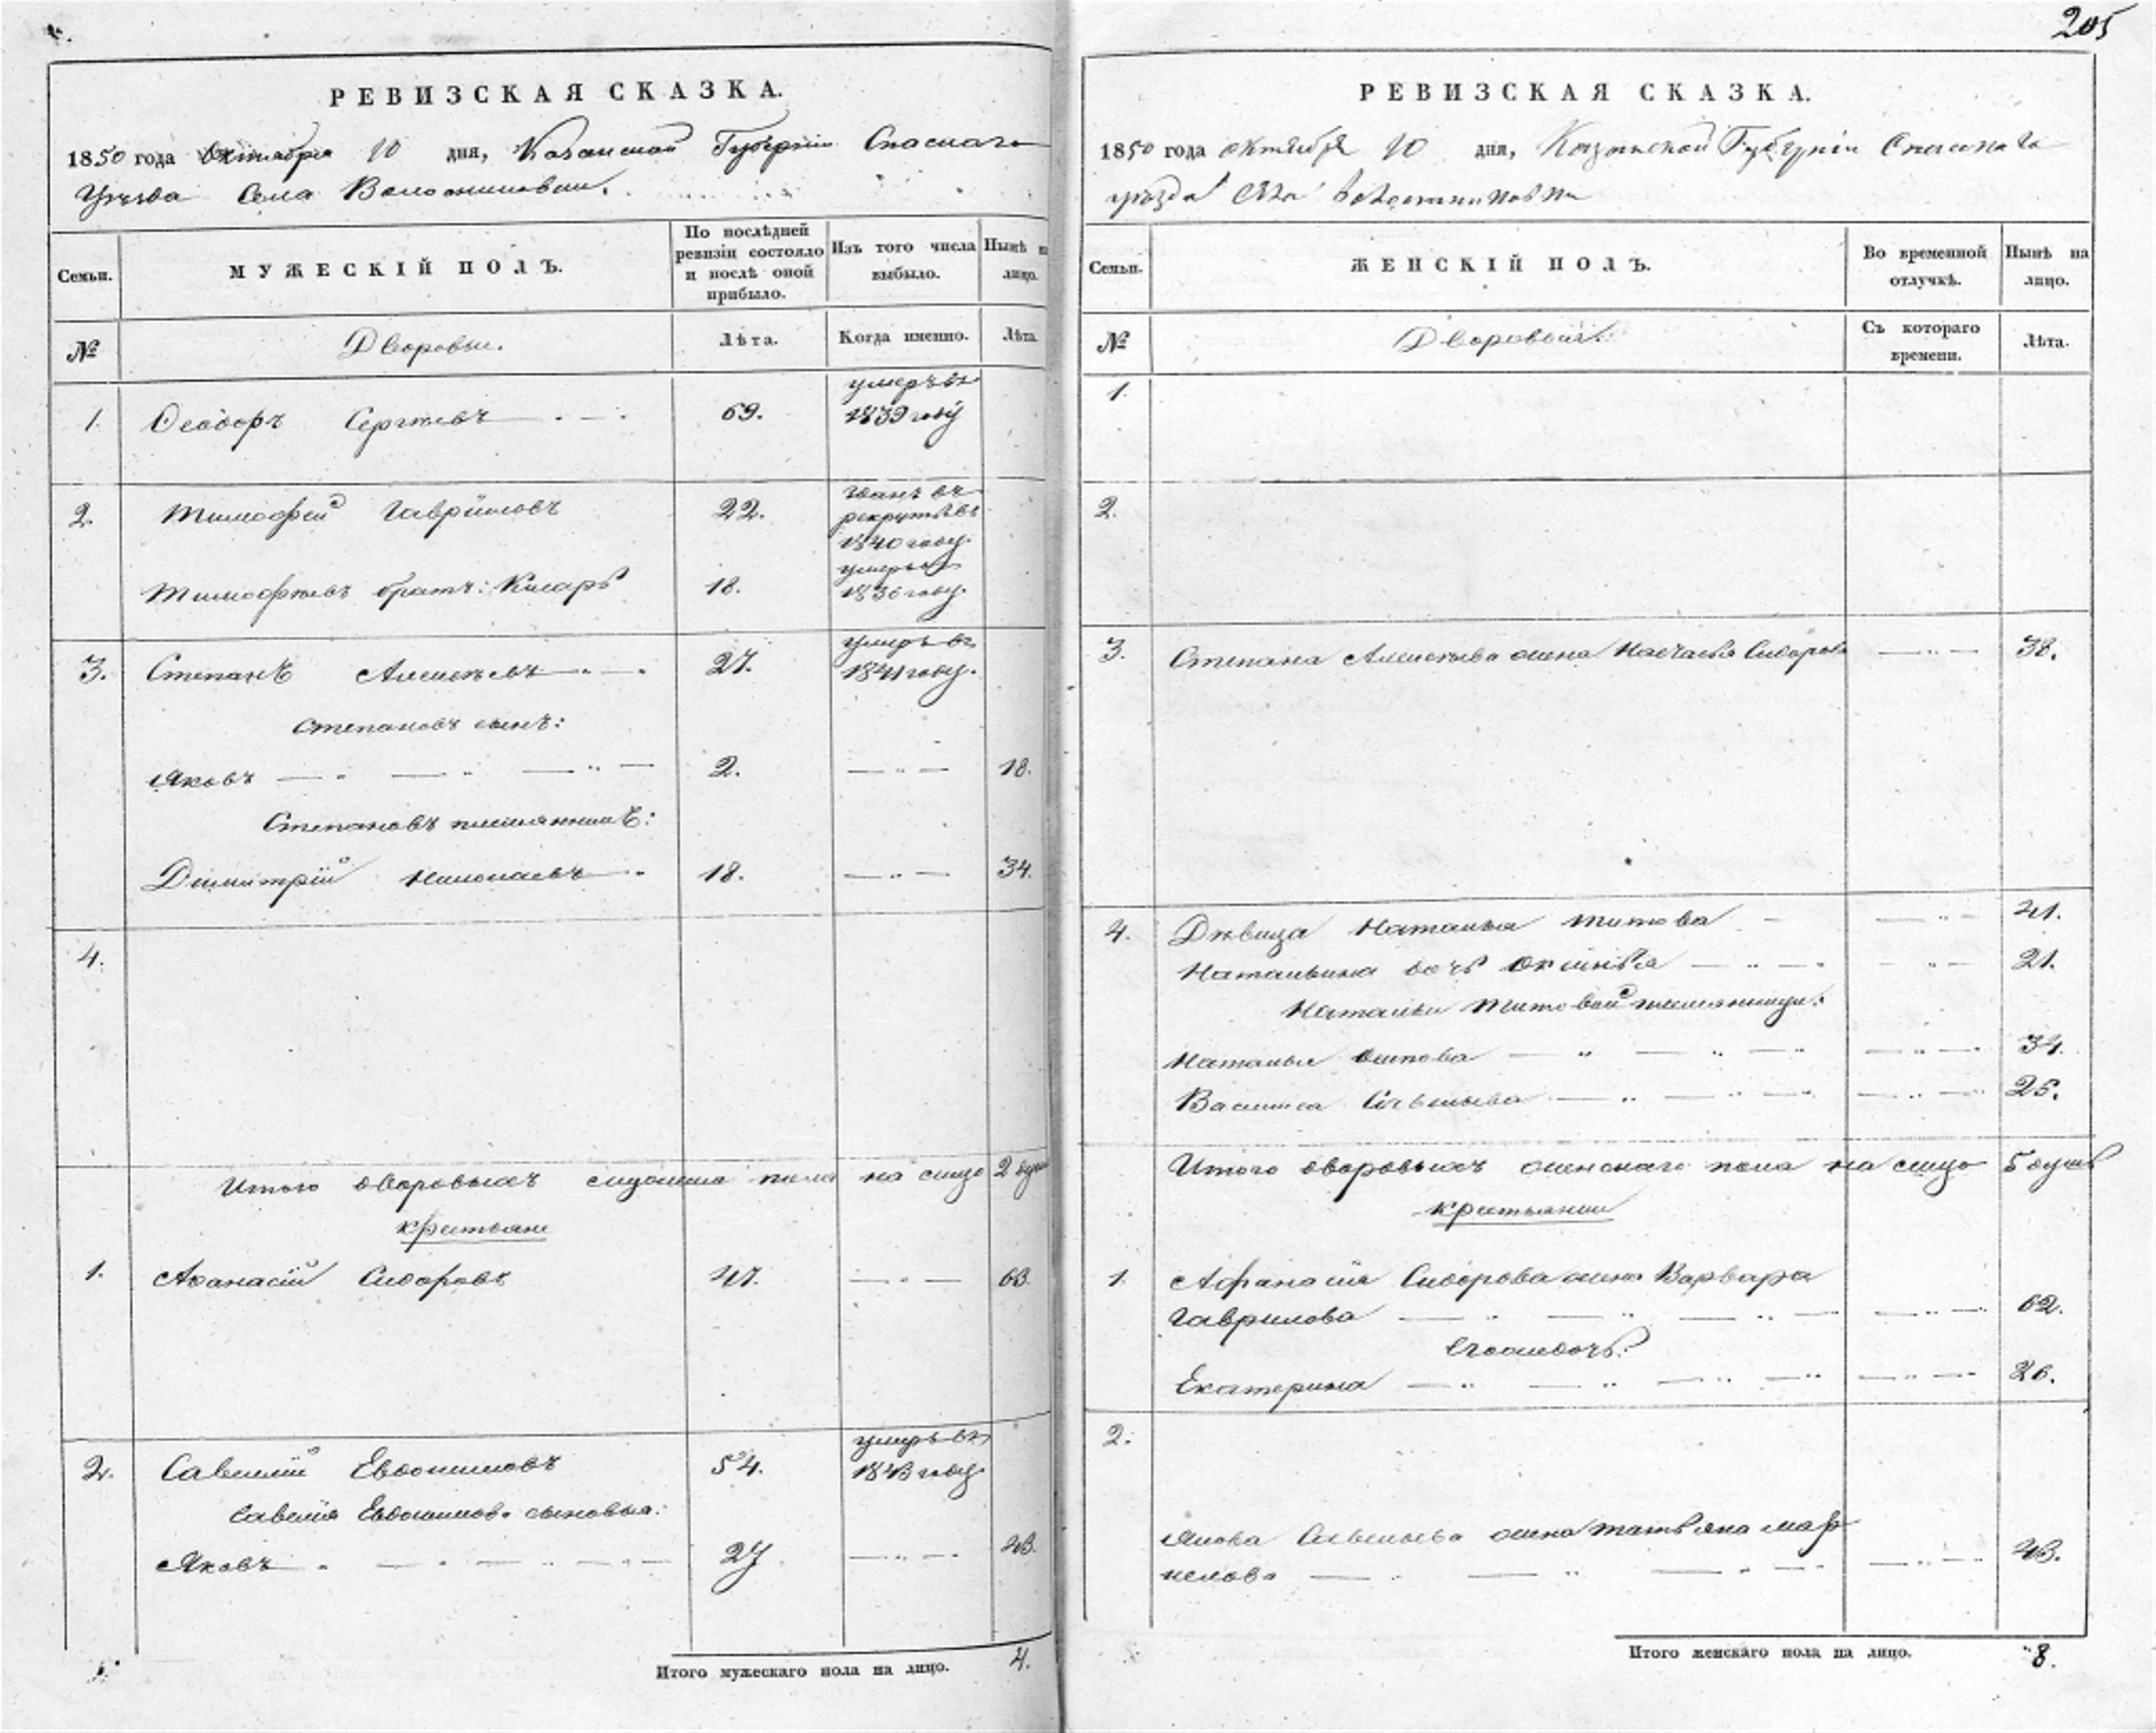 РЕВИЗСКАЯ СКАЗКА.
1850 года Октября 10 дня, Казанской Губернии Спаскаго
Уѣзда Села
Семьи.
МУЖЕСКІЙ ПОЛЪ.
По послѣдней ревизіи состояло и послѣ оной прибыло.
Изъ того числа выбыло.
Нынѣ на лицо.
№
Дворовые.
Лѣта.
Когда именно.
Лѣта.
1. Ѳеодоръ Сергѣевъ 69. умеръ въ 1839 году
2. Тимофей Гаврииловъ 22. въ рекруты въ 1840 году.
Тимофѣевъ братъ: 18. умеръ въ 1836 году.
3. Степанъ Алексѣевъ 27. умеръ въ 1841 году.
Степановъ сынъ:
Яковъ 2. 18.
Степановъ племянникъ:
Димитрій Николаевъ 18. 34.
4.
Итого дворовыхъ мужеска пола на лицо 2 души
крестьяне
1. Аѳанасій Сидоровъ 47. 63.
2. Савелій Евдокимовъ 54. умеръ въ 1843 году.
Савелія Евдокимова сыновья:
Яковъ 27 43.
Итого мужескаго пола на лицо. 4.
205
РЕВИЗСКАЯ СКАЗКА.
1850 года октября 10 дня, Казанской Губерніи Спаскаго
уѣзда Села
Семьи.
ЖЕНСКІЙ ПОЛЪ.
Во временной отлучкѣ.
Нынѣ на лицо.
№
Дворовыя.
Съ котораго времени.
Лѣта.
1.
2.
3. Степана Алексѣева жена Настасья Сидорова 38.
4. Дѣвица Наталья Титова 41.
Натальина дочь 21.
Натальи Титовой племянницы:
Наталья Осипова 34.
Василиса Савельева 25.
Итого дворовыхъ женскаго пола на лицо 5 душъ
крестьянки
1. Афанасія Сидорова жена Варвара
Гаврилова 62.
Его дочь:
Екатерина 26.
2.
Якова Савельева жена Татьяна Мар
келова 43.
Итого женскаго пола на лицо. 8.